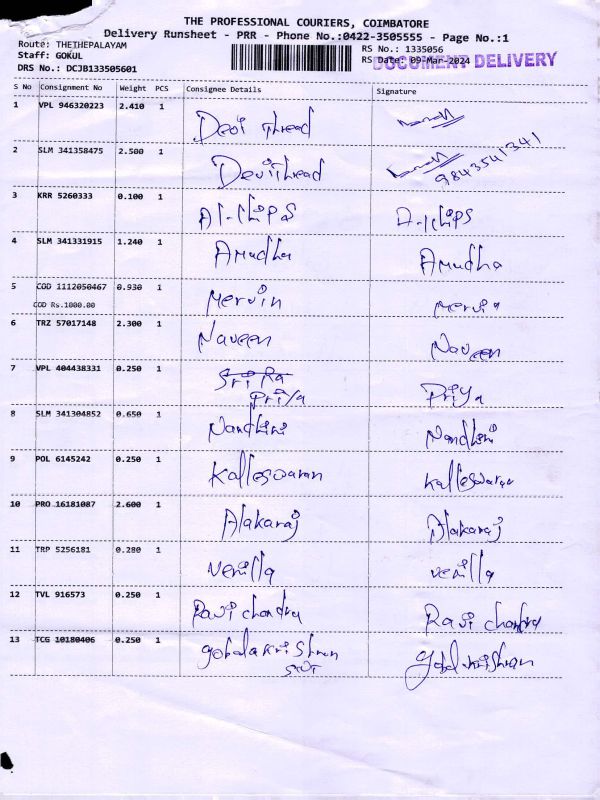 THE PROFESSIONAL COURIERS, COIMBATORE
Delivery Runsheet - PRR - Phone No.:0422-3505555 - Page No.:1
Route: THETHEPALAYAM
RS No.: 1335056
Staff: GOKUL
RS Date: 09-Mar-2024 DOCUMENT DELIVERY
DRS No.: DCJB133505601
S No Consignment No Weight PCS Consignee Details Signature
1 VPL 946320223 2.410 1 Devi thread
2 SLM 341358475 2.500 1 Devithread 9843541341
3 KRR 5260333 0.100 1 A1-chips A-chips
4 SLM 341331915 1.240 1 Amudha Amudha
5 COD 1112050467 0.930 1 Mervin Mervin
COD Rs.1000.00
6 TRZ 57017148 2.300 1 Naveen Naveen
7 VPL 404438331 0.250 1 Priya Priya
8 SLM 341304852 0.650 1 Nandhini Nandhini
9 POL 6145242 0.250 1 Kalleswaran Kalleswaran
10 PRO 16181087 2.600 1 Alakaraj Alakaraj
11 TRP 5256181 0.280 1 Venilla Venilla
12 TVL 916573 0.250 1 Ravi chandru Ravi chandru
13 TCG 10180406 0.250 1 gobalakrishnan gobalkrishnan